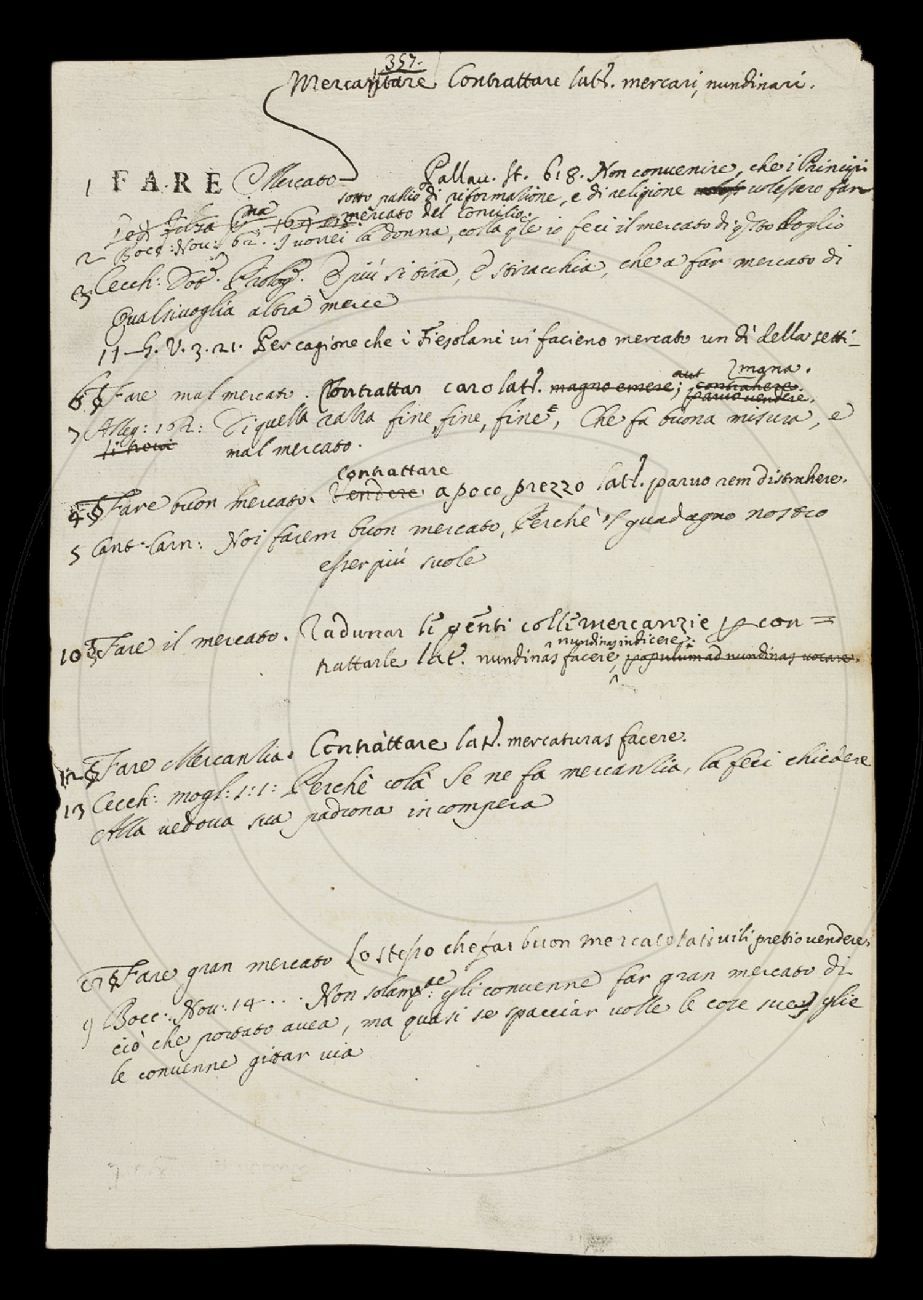 357.
Mercantare Contrattare lat. mercari, nundinari.
1 FARE Mercato Pallav. St. 618. Non convenire, che i Principi
sotto pallio di riformazione, e di religione volessero far
mercato del Concilio.
2 Bocc: Nov: 62. I vorrei la donna, colla qle io feci il mercato di qsto doglio
3 Cecch: Dot: Prolog. E più si tira, e stiracchia, che a far mercato di
Qualsivoglia altra merce
11 G. V. 3. 21. Per cagione che i Fiesolani vi facieno mercato un dì della setti-
mana.
6 § Fare mal mercato. Contrattar caro lat. magno emere; aut contrahere.
parvo vendere.
7 Alleg: 162: Di quella cialtra fine, fine, fine, Che fa buona misura, e
mal mercato.
contrattare
4 § Fare buon mercato. Vendere a poco prezzo lat. parvo rem distrahere.
5 Cant. Carn: Noi farem buon mercato, Perchè 'l guadagno nostro
esser più suole
10 § Fare il mercato. Radunar le genti colle mercanzie p con=
nundinas indicere
trattarle lat. nundinas facere, populum ad nundinas vocare.
12 § Fare Mercanzia. Contrattare lat. mercaturas facere.
13 Cecch: mogl: 1: 1: Perchè colà Se ne fa mercanzia, la feci chiedere
Alla vedova sua padrona in compera
8 § Fare gran mercato Lo stesso che far buon mercato lat. vili pretio vendere.
9 Bocc: Nov: 14 ... Non solamte gli convenne far gran mercato di
ciò che portato avea, ma quasi se spacciar volle le cose sue, glie
le convenne gittar via